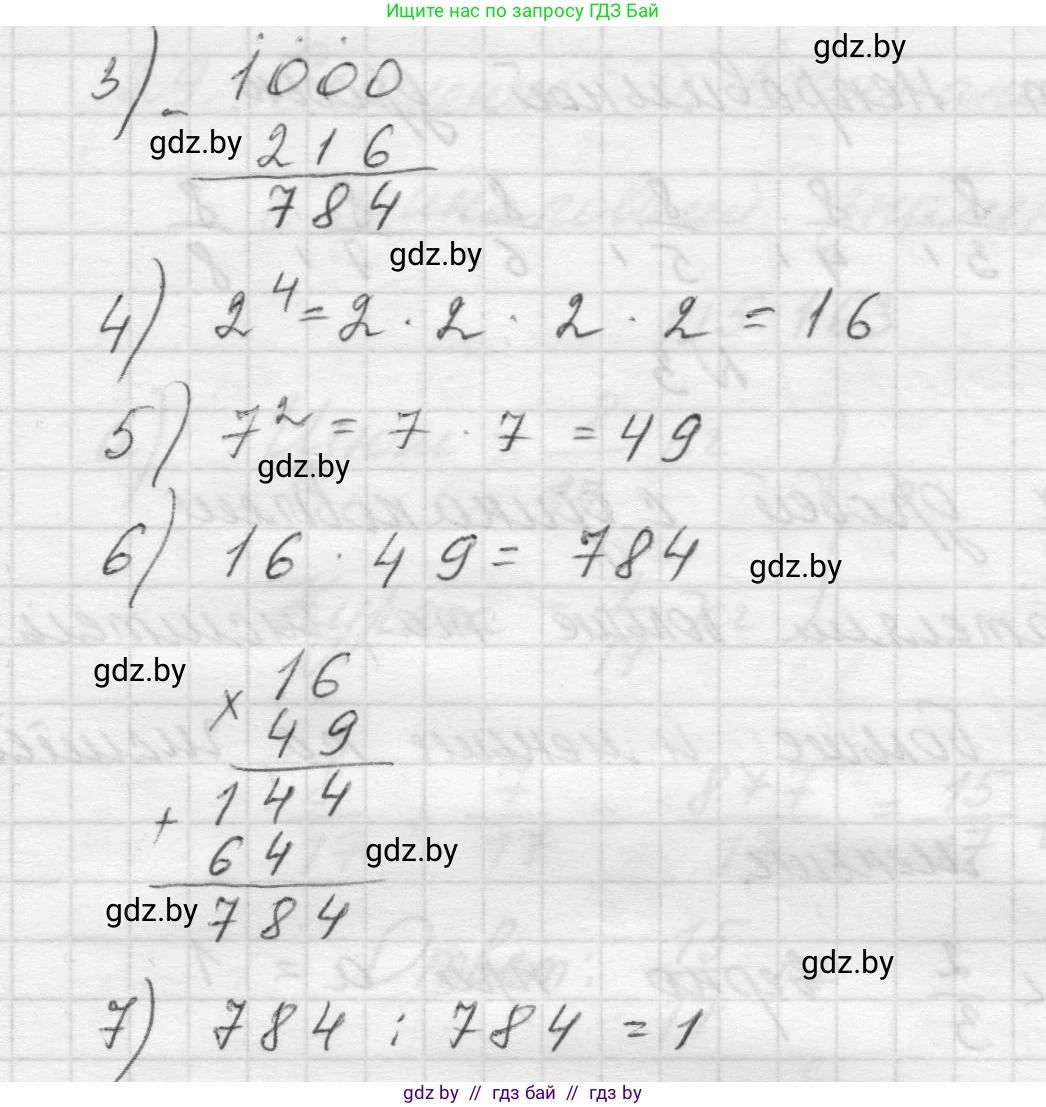 Ищите нас по запросу ГДЗ Бай
gdz.by
3) - 1000
gdz.by 216
784
gdz.by
4) 2⁴ = 2 · 2 · 2 · 2 = 16
5) 7² = 7 · 7 = 49
gdz.by
6) 16 · 49 = 784
gdz.by
gdz.by
16
x 49
144
+ 64
gdz.by
gdz.by 784
gdz.by
7) 784 : 784 = 1
gdz by // гдз бай // гдз by